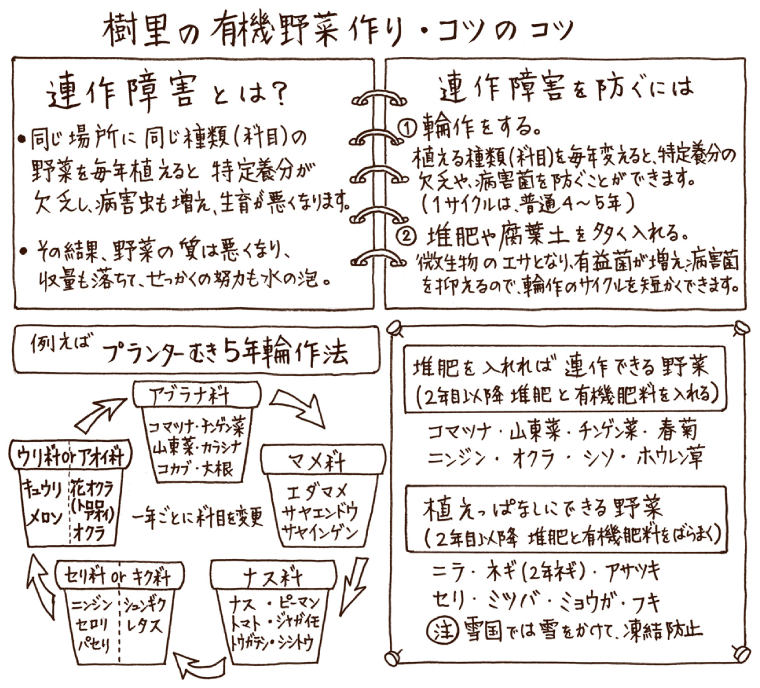 樹里の有機野菜作り・コツのコツ
連作障害とは？
・同じ場所に同じ種類(科目)の
野菜を毎年植えると特定養分が
欠乏し、病害虫も増え、生育が悪くなります。
・その結果、野菜の質は悪くなり、
収量も落ちて、せっかくの努力も水の泡。
連作障害を防ぐには
①輪作をする。
植える種類(科目)を毎年変えると、特定養分の
欠乏や、病害菌を防ぐことができます。
(1サイクルは、普通4〜5年)
②堆肥や腐葉土を多く入れる。
微生物のエサとなり、有益菌が増え、病害菌
を抑えるので、輪作のサイクルを短かくできます。
例えば プランターむき5年輪作法
アブラナ科
コマツナ・チンゲン菜
山東菜・カラシナ
コカブ・大根
マメ科
エダマメ
サヤエンドウ
サヤインゲン
ナス科
ナス・ピーマン
トマト・ジャガイモ
トウガラシ・シシトウ
セリ科 or キク科
ニンジン シュンギク
セロリ レタス
パセリ
ウリ科orアオイ科
キュウリ 花オクラ
メロン (トロロアオイ)
オクラ
一年ごとに科目を変更
堆肥を入れれば連作できる野菜
(2年目以降 堆肥と有機肥料を入れる)
コマツナ・山東菜・チンゲン菜・春菊
ニンジン・オクラ・シソ・ホウレン草
植えっぱなしにできる野菜
(2年目以降 堆肥と有機肥料をばらまく)
ニラ・ネギ(2年ネギ)・アサツキ
セリ・ミツバ・ミョウガ・フキ
注 雪国では雪をかけて、凍結防止